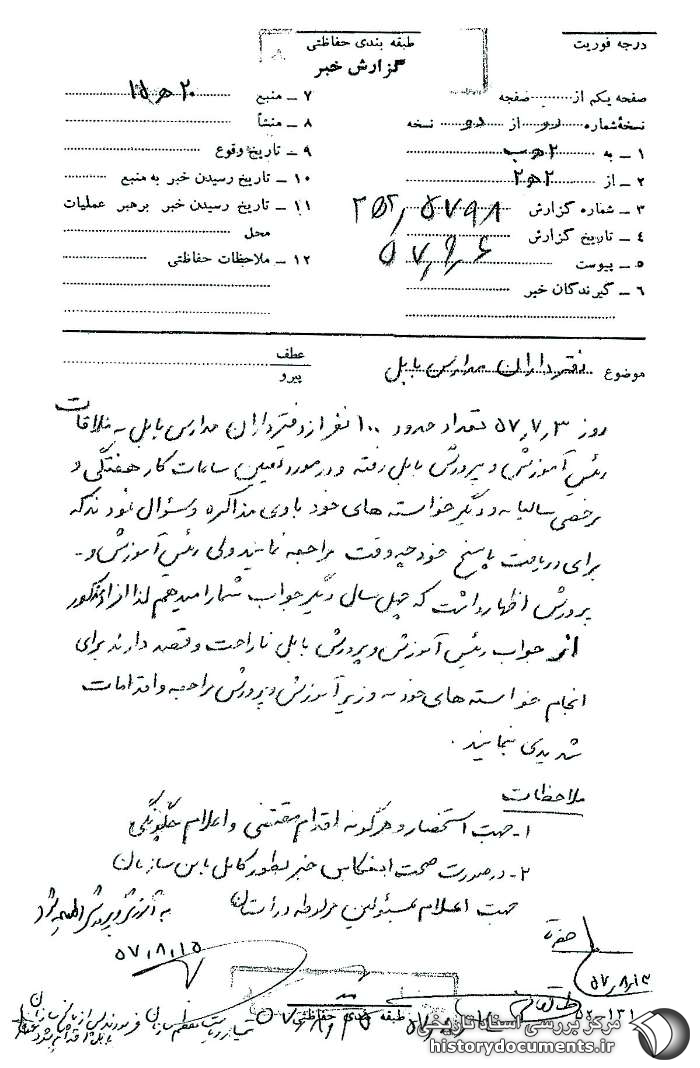 درجه فوریت
طبقه بندی حفاظتی
گزارش خبر
صفحه یکم از صفحه
نسخهٔ شماره دو از دو نسخه
۱ ـ به ۲ هـ ب
۲ ـ از ۲ هـ ۲
۳ ـ شماره گزارش
۴ ـ تاریخ گزارش ۵۷٫۹٫۶
۵ ـ پیوست
۶ ـ گیرندگان خبر
۷ ـ منبع
۸ ـ منشأ
۹ ـ تاریخ وقوع
۱۰ ـ تاریخ رسیدن خبر به منبع
۱۱ ـ تاریخ رسیدن خبر برهبر عملیات
محل
۱۲ ـ ملاحظات حفاظتی
موضوع دفترداران مدارس بابل
عطف
پیرو
روز ۵۷٫۷٫۳ تعداد حدود ۱۰۰ نفر از دفترداران مدارس بابل به ملاقات
رئیس آموزش و پرورش بابل رفته و در مورد تعیین ساعات کار هفتگی و
مرخصی سالیانه و دیگر خواسته های خود با وی مذاکره و سئوال نمودند که
برای دریافت پاسخ خود چه وقت مراجعه نمایند ولی رئیس آموزش و ـ
پرورش اظهار داشت که چهل سال دیگر جواب شما را میدهم لذا افراد مذکور
از جواب رئیس آموزش و پرورش بابل ناراحت و قصد دارند برای
انجام خواسته های خود به وزیر آموزش و پرورش مراجعه و اقدامات
شدیدی بنمایند .
ملاحظات
۱ـ جهت استحضار و هرگونه اقدام مقتضی و اعلام چگونگی
۲ـ در صورت صحت انعکاس خبر بطور کامل باین سازمان
جهت اعلام بمسئولین مربوطه در استان
۵۷٫۸٫۱۵
۵۷٫۸٫۱۳
طبقه بندی حفاظتی
۵۲ـ۱۳۱
مرکز بررسی اسناد تاریخی
historydocuments.ir